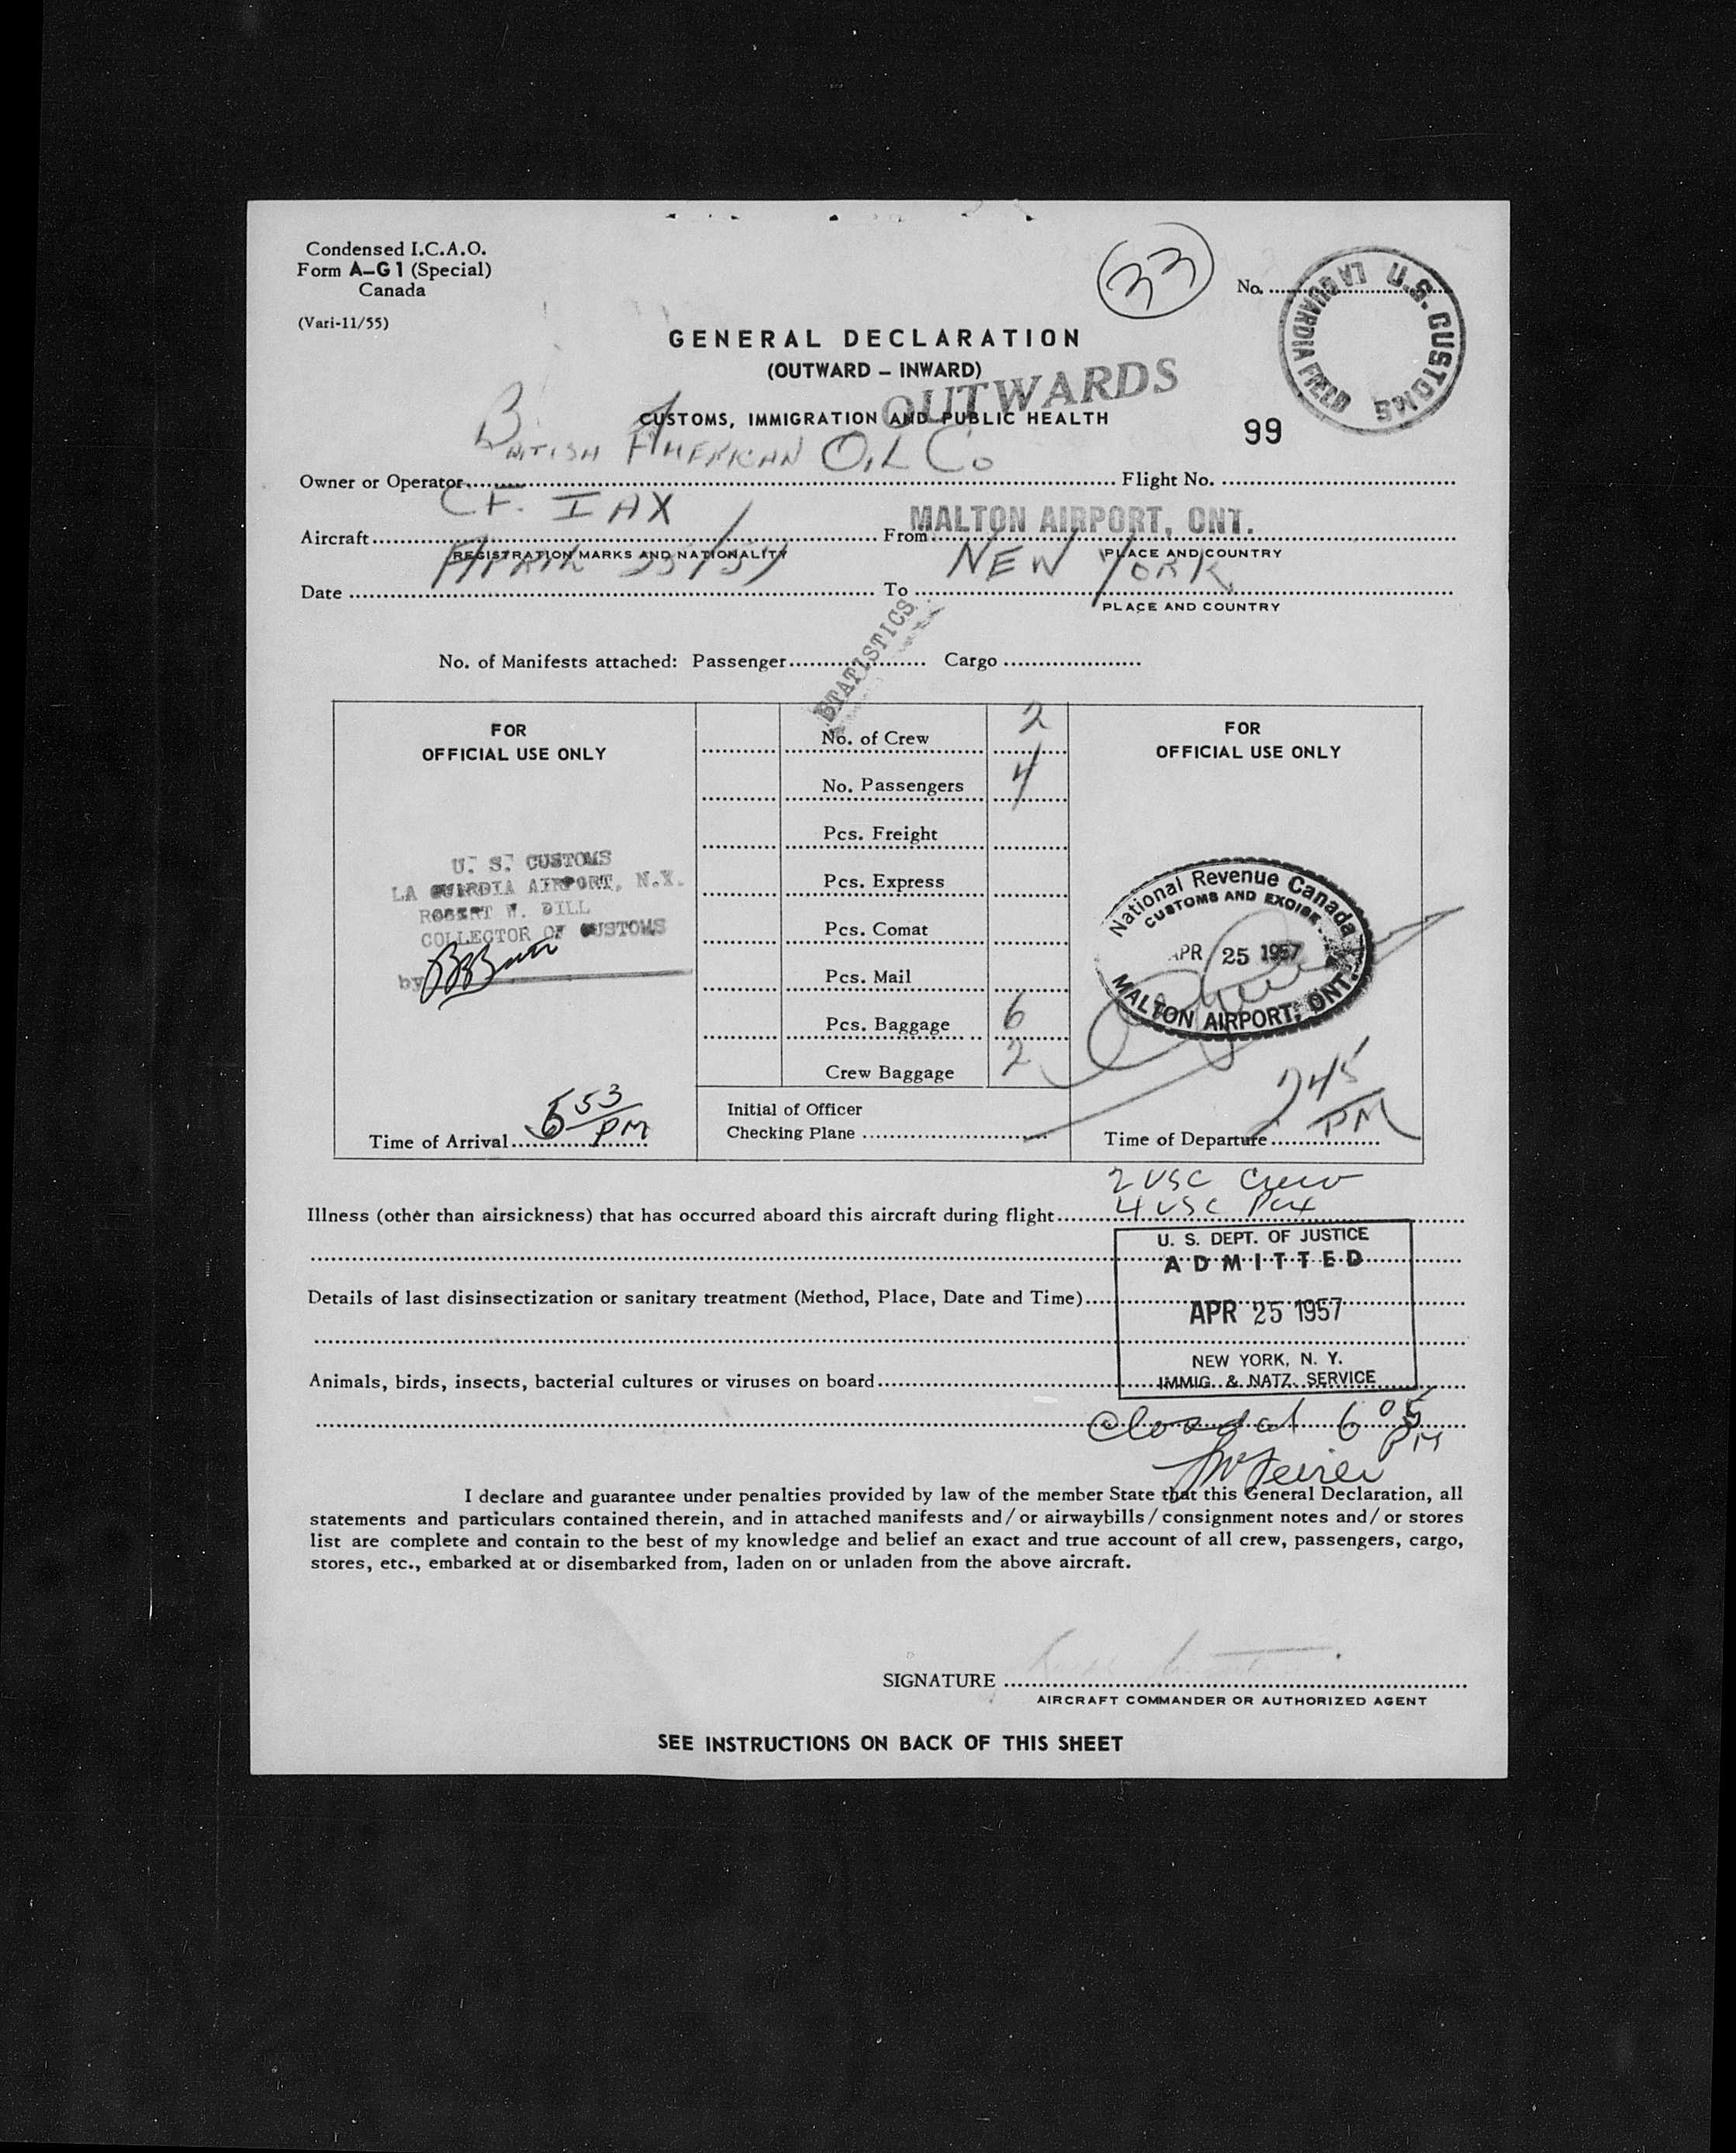 Condensed I.C.A.O.
Form A–G1 (Special)
Canada
(Vari-11/55)
33
No.
U.S. CUSTOMS LA GUARDIA FIELD
GENERAL DECLARATION
(OUTWARD – INWARD)
OUTWARDS
CUSTOMS, IMMIGRATION AND PUBLIC HEALTH
99
Owner or Operator BRITISH AMERICAN OIL CO Flight No.
Aircraft CF. IAX From MALTON AIRPORT, ONT.
REGISTRATION MARKS AND NATIONALITY PLACE AND COUNTRY
Date APRIL 25/57 To NEW YORK
PLACE AND COUNTRY
STATISTICS
No. of Manifests attached: Passenger Cargo
FOR
OFFICIAL USE ONLY
U. S. CUSTOMS
LA GUARDIA AIRPORT, N.Y.
ROBERT W. DILL
COLLECTOR OF CUSTOMS
by
Time of Arrival 5 53 PM
No. of Crew 2
No. Passengers 4
Pcs. Freight
Pcs. Express
Pcs. Comat
Pcs. Mail
Pcs. Baggage 6
Crew Baggage 2
Initial of Officer
Checking Plane
FOR
OFFICIAL USE ONLY
National Revenue Canada
CUSTOMS AND EXCISE
APR 25 1957
MALTON AIRPORT, ONT.
Time of Departure 245 PM
2 USC Crew
4 USC Pax
Illness (other than airsickness) that has occurred aboard this aircraft during flight
U. S. DEPT. OF JUSTICE
ADMITTED
Details of last disinsectization or sanitary treatment (Method, Place, Date and Time)
APR 25 1957
NEW YORK, N. Y.
IMMIG. & NATZ. SERVICE
Animals, birds, insects, bacterial cultures or viruses on board
Closed at 6 05 PM
I declare and guarantee under penalties provided by law of the member State that this General Declaration, all
statements and particulars contained therein, and in attached manifests and/or airwaybills/consignment notes and/or stores
list are complete and contain to the best of my knowledge and belief an exact and true account of all crew, passengers, cargo,
stores, etc., embarked at or disembarked from, laden on or unladen from the above aircraft.
SIGNATURE
AIRCRAFT COMMANDER OR AUTHORIZED AGENT
SEE INSTRUCTIONS ON BACK OF THIS SHEET